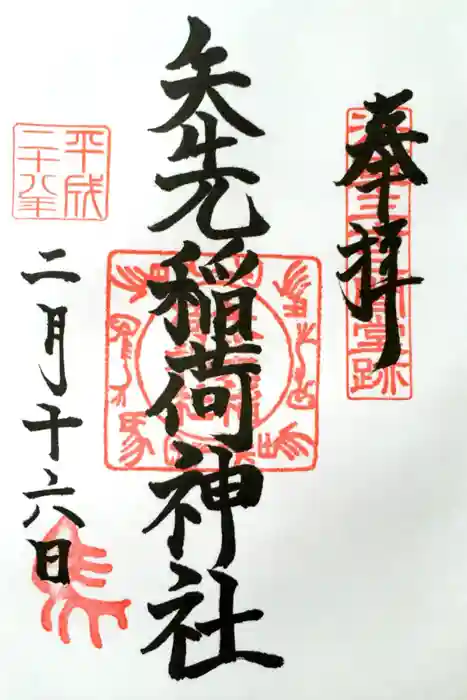 奉拝
矢先稲荷神社
平成
二十八年
二月十六日